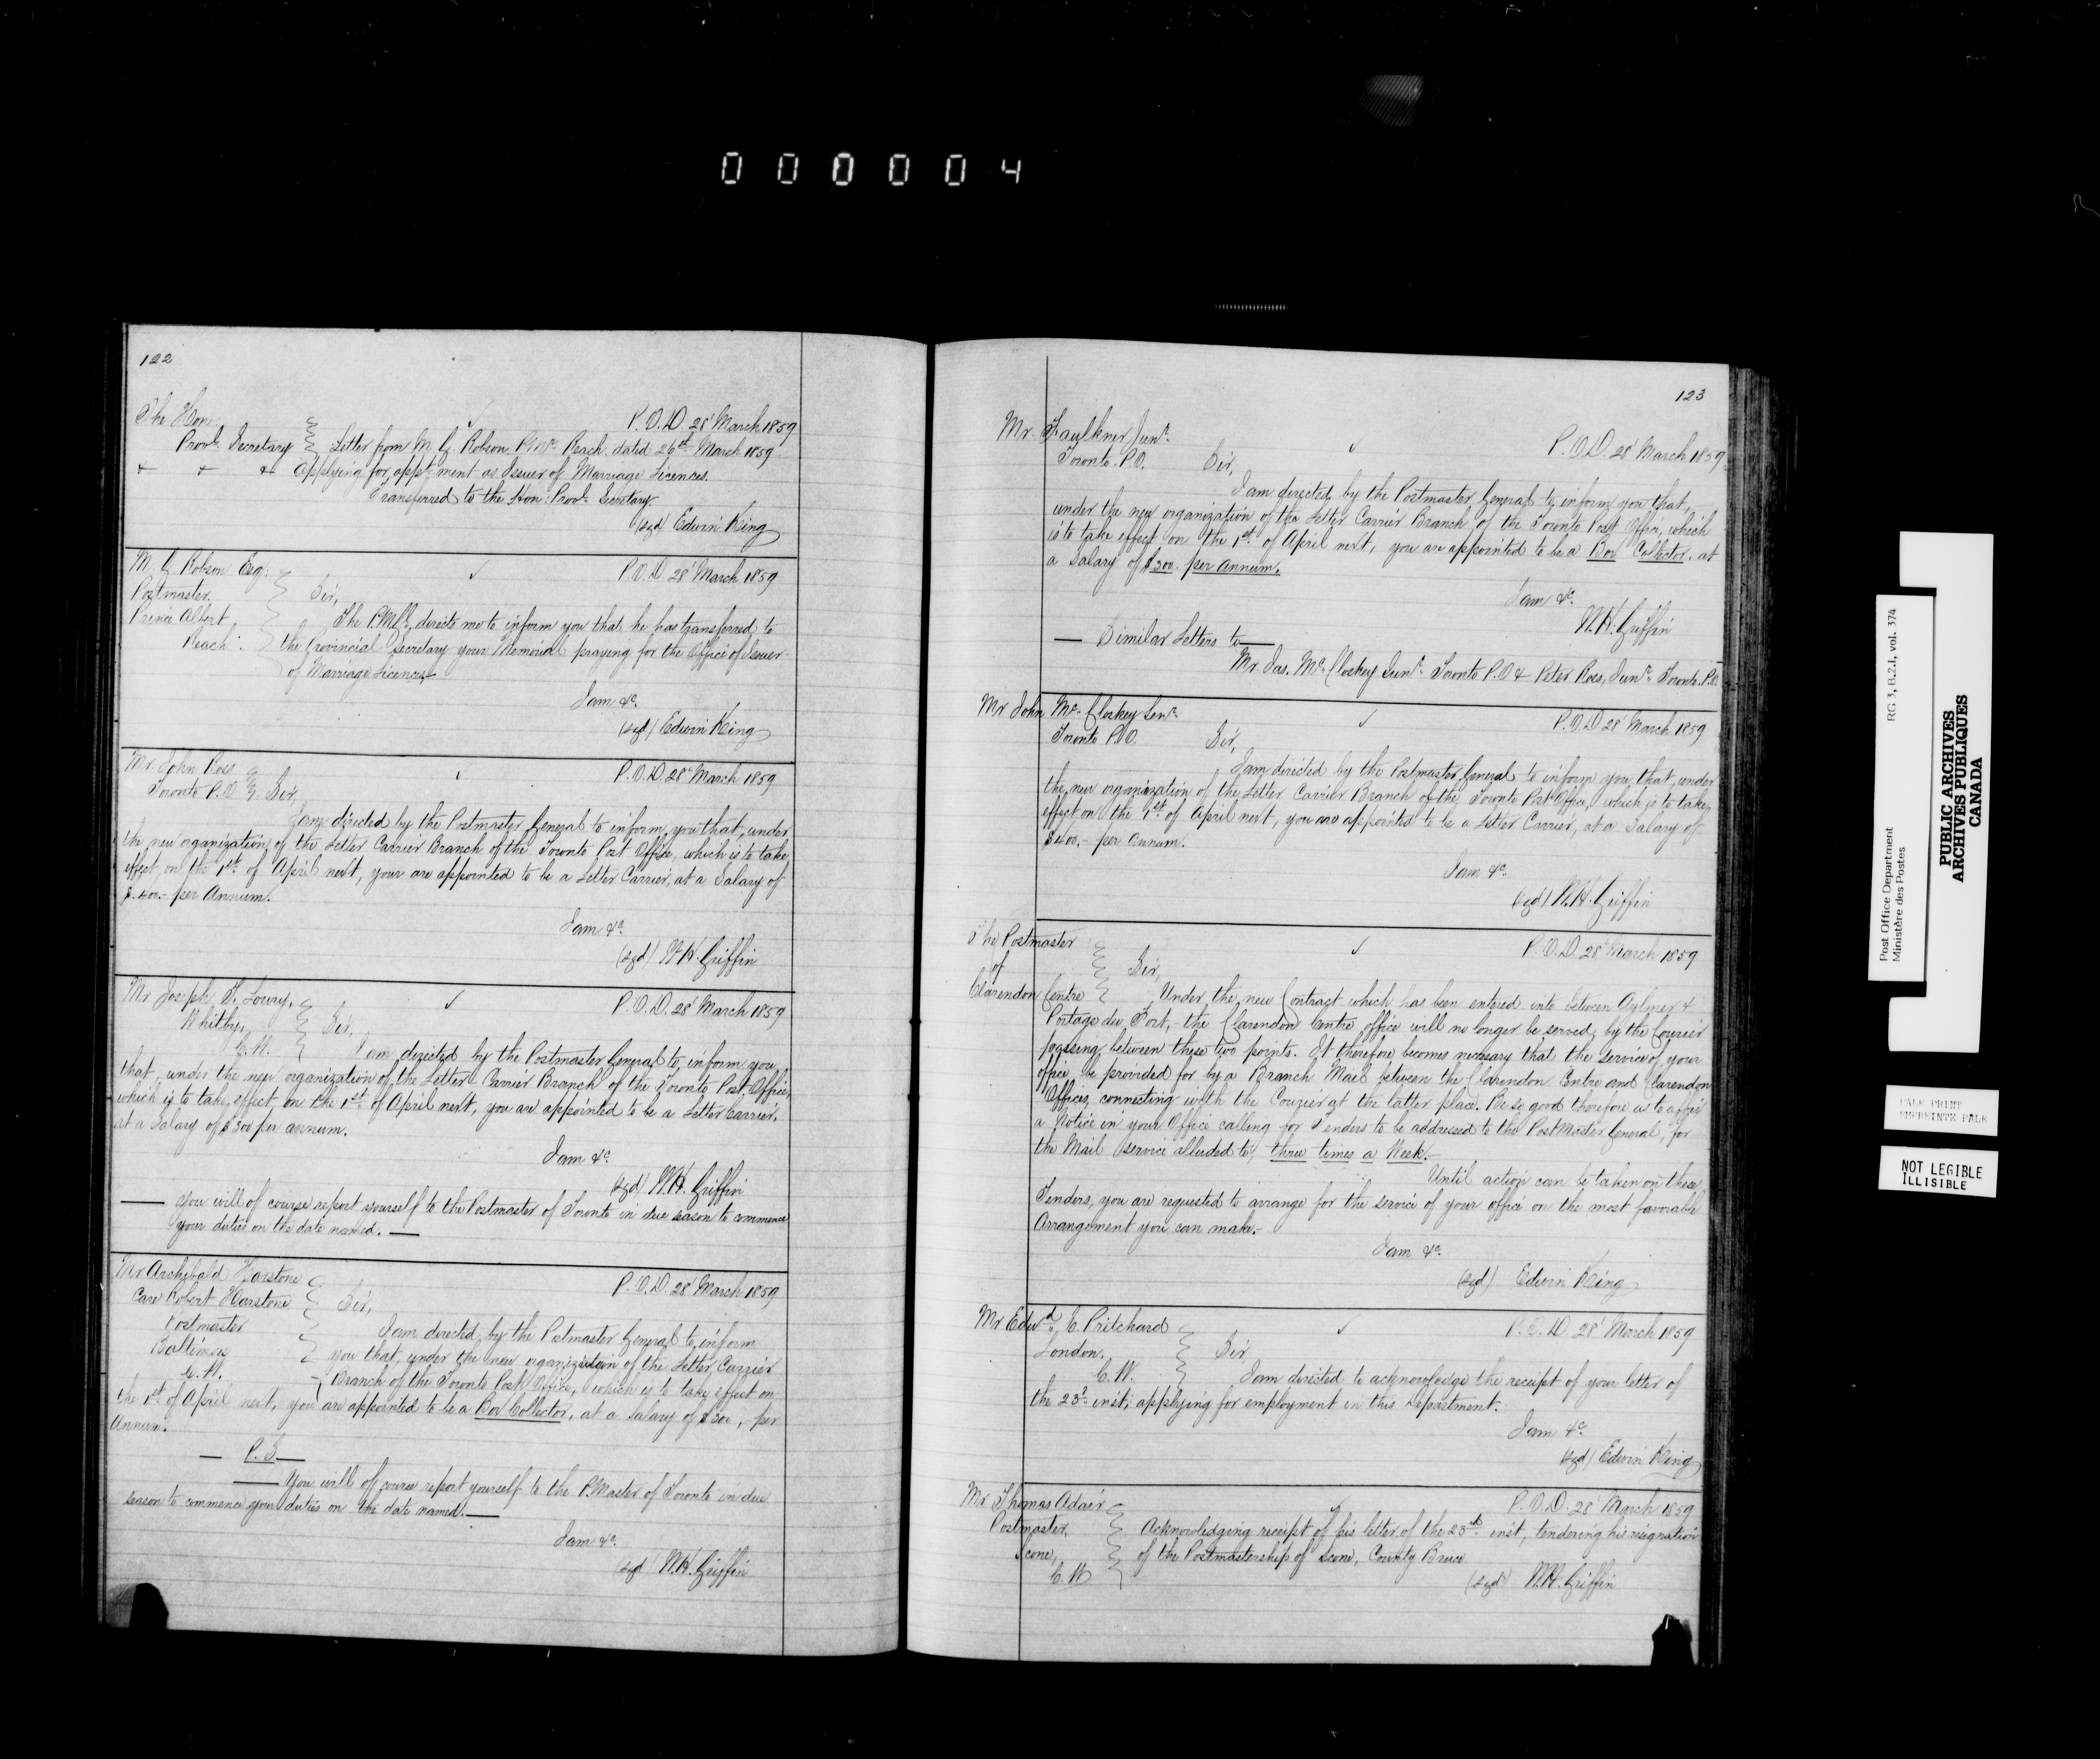 000004
122
The Hon:
P.O.D. 28' March 1859
Provl. Secretary Letter from M. G. Robson P.Mr. Reach, dated 26th March 1859
Applying for appt-ment as Issuer of Marriage Licences.
Transferred to the Hon: Provl. Secretary.
(sgd) Edwin King
M. G. Robson Esq:
P.O.D. 28' March 1859
Postmaster. Sir,
Prince Albert The P.M.G. directs me to inform you that he has transferred to
Reach: the Provincial Secretary your Memorial praying for the Office of Issuer
of Marriage Licences.
I am &c.
(sgd) Edwin King
Mr. John Ross
P.O.D. 28' March 1859
Toronto P.O. Sir,
I am directed by the Postmaster General to inform you that, under
the new organization of the Letter Carrier Branch of the Toronto Post Office, which is to take
effect, on the 1st. of April next, your are appointed to be a Letter Carrier, at a Salary of
$400.- per Annum.
I am &c.
(sgd) W.H. Griffin
Mr Joseph T. Lowry,
P.O.D. 28' March 1859
Whitby, Sir,
C.W. I am directed by the Postmaster General to inform you
that, under the new organization of the Letter Carrier Branch of the Toronto Post Office,
which is to take effect, on the 1st of April next, you are appointed to be a Letter Carrier,
at a Salary of $300 per annum.
I am &c.
(sgd) W.H. Griffin
— you will of course report yourself to the Postmaster of Toronto in due season to commence
your duties on the date named. —
Mr Archibald Harstone
P.O.D. 28' March 1859
Care Robert Harstone Sir,
Postmaster I am directed by the Postmaster General to inform
Baltimore you that, under the new organization of the Letter Carrier
C.W. Branch of the Toronto Post Office, which is to take effect on
the 1st of April next, you are appointed to be a Box Collector, at a Salary of $300,- per
Annum.
— P.S. —
— You will of course report yourself to the P.Master of Toronto in due
season to commence your duties on the date named. —
I am &c.
(sgd) W.H. Griffin
123
Mr. Faulkner Junr.
P.O.D. 28' March 1859
Toronto P.O. Sir,
I am directed by the Postmaster General to inform you that,
under the new organization of the Letter Carrier Branch of the Toronto Post Office, which
is to take effect on the 1st. of April next, you are appointed to be a Box Collector, at
a Salary of $300. per annum.
I am &c.
W.H. Griffin
— Similar Letters to —
Mr. Jas. McCloskey Junr. Toronto P.O. & Peter Ross, Junr. Toronto P.O.
Mr John McCloskey Senr.
P.O.D. 28' March 1859
Toronto P.O. Sir,
I am directed by the Postmaster General to inform you that, under
the new organization of the Letter Carrier Branch of the Toronto Post Office, which is to take
effect on the 1st of April next, you are appointed to be a Letter Carrier, at a Salary of
$400,- per annum.
I am &c.
(sgd) W.H. Griffin
The Postmaster
P.O.D. 28' March 1859
of Sir,
Clarendon Centre Under the new Contract which has been entered into between Aylmer &
Portage du Fort, the Clarendon Centre office will no longer be served by the Courier
passing between these two points. It therefore becomes necessary that the service of your
office be provided for by a Branch Mail between the Clarendon Centre and Clarendon
Offices, connecting with the Courier at the latter place. Be so good therefore as to affix
a Notice in your Office calling for Tenders to be addressed to the PostMaster General, for
the Mail service alluded to, three times a Week.-
Until action can be taken on these
Tenders, you are requested to arrange for the service of your office on the most favorable
Arrangement you can make.-
I am &c.
(sgd) Edwin King
Mr Edwd. C. Pritchard
P.O.D. 28' March 1859
London, Sir,
C.W. I am directed to acknowledge the receipt of your letter of
the 23d. inst, applying for employment in this Department.
I am &c.
(sgd) Edwin King
Mr Thomas Adair
P.O.D. 28' March 1859
Postmaster, Acknowledging receipt of his letter of the 23rd inst, tendering his resignation
Scone, of the Postmastership of Scone, County Bruce
C.W
(sgd) W.H. Griffin
Post Office Department RG 3, B.2.I, vol. 374
Ministère des Postes
PUBLIC ARCHIVES
ARCHIVES PUBLIQUES
CANADA
PALE PRINT
EMPREINTE PALE
NOT LEGIBLE
ILLISIBLE